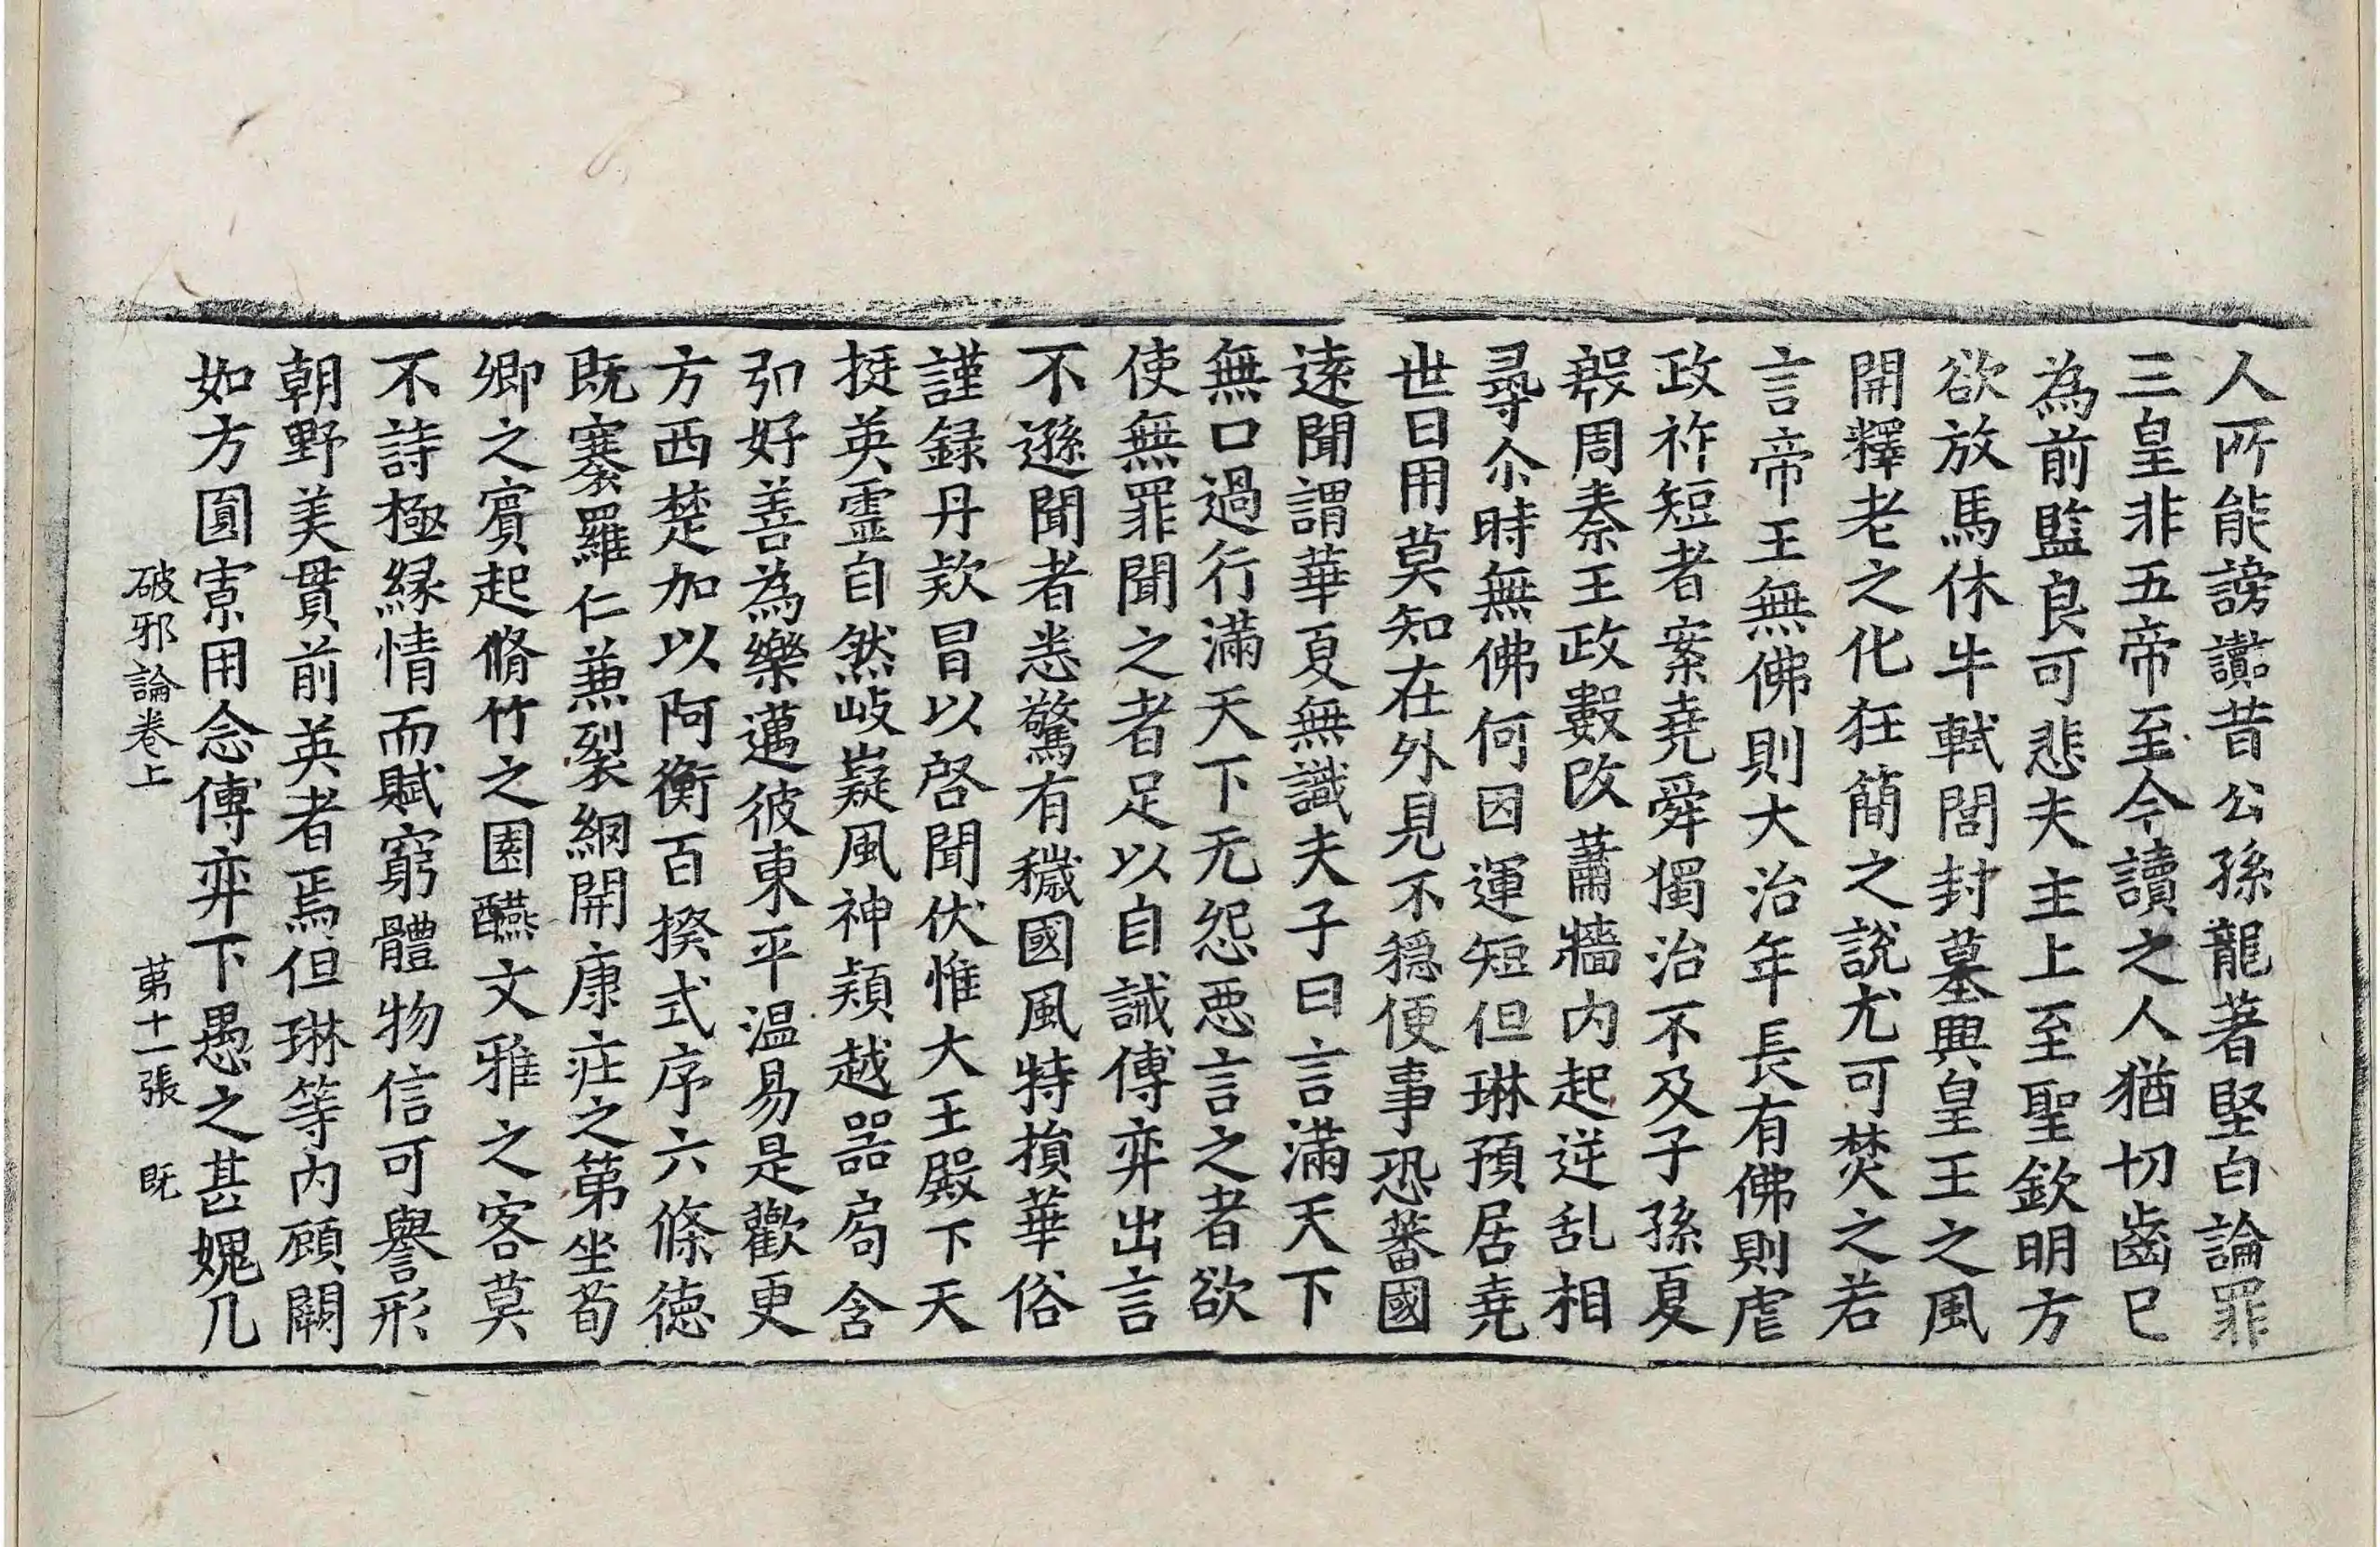 人所能謗讟昔公孫龍著堅白論罪
三皇非五帝至今讀之人猶切齒已
為前監良可悲夫主上至聖欽明方
欲放馬休牛軾閭封墓興皇王之風
開釋老之化狂簡之說尤可焚之若
言帝王無佛則大治年長有佛則虐
政祚短者案堯舜獨治不及子孫夏
殷周秦王政數改蕭牆內起逆乱相
尋尒時無佛何因運短但琳預居堯
世日用莫知在外見不穩便事恐蕃國
遠聞謂華夏無識夫子曰言滿天下
無口過行滿天下无怨惡言之者欲
使無罪聞之者足以自誡傅弈出言
不遜聞者悉驚有穢國風特損華俗
謹録丹款冒以啓聞伏惟大王殿下天
挺英靈自然岐嶷風神頴越器局含
弘好善為樂邁彼東平温易是歡更
方西楚加以阿衡百揆式序六條德
既褰羅仁兼裂網開康莊之第坐荀
卿之賓起脩竹之園醼文雅之客莫
不詩極緣情而賦窮體物信可譽形
朝野美貫前英者焉但琳等內顧闒
如方圓寡用念傅弈下愚之甚媿凡
破邪論卷上 第十一張 既